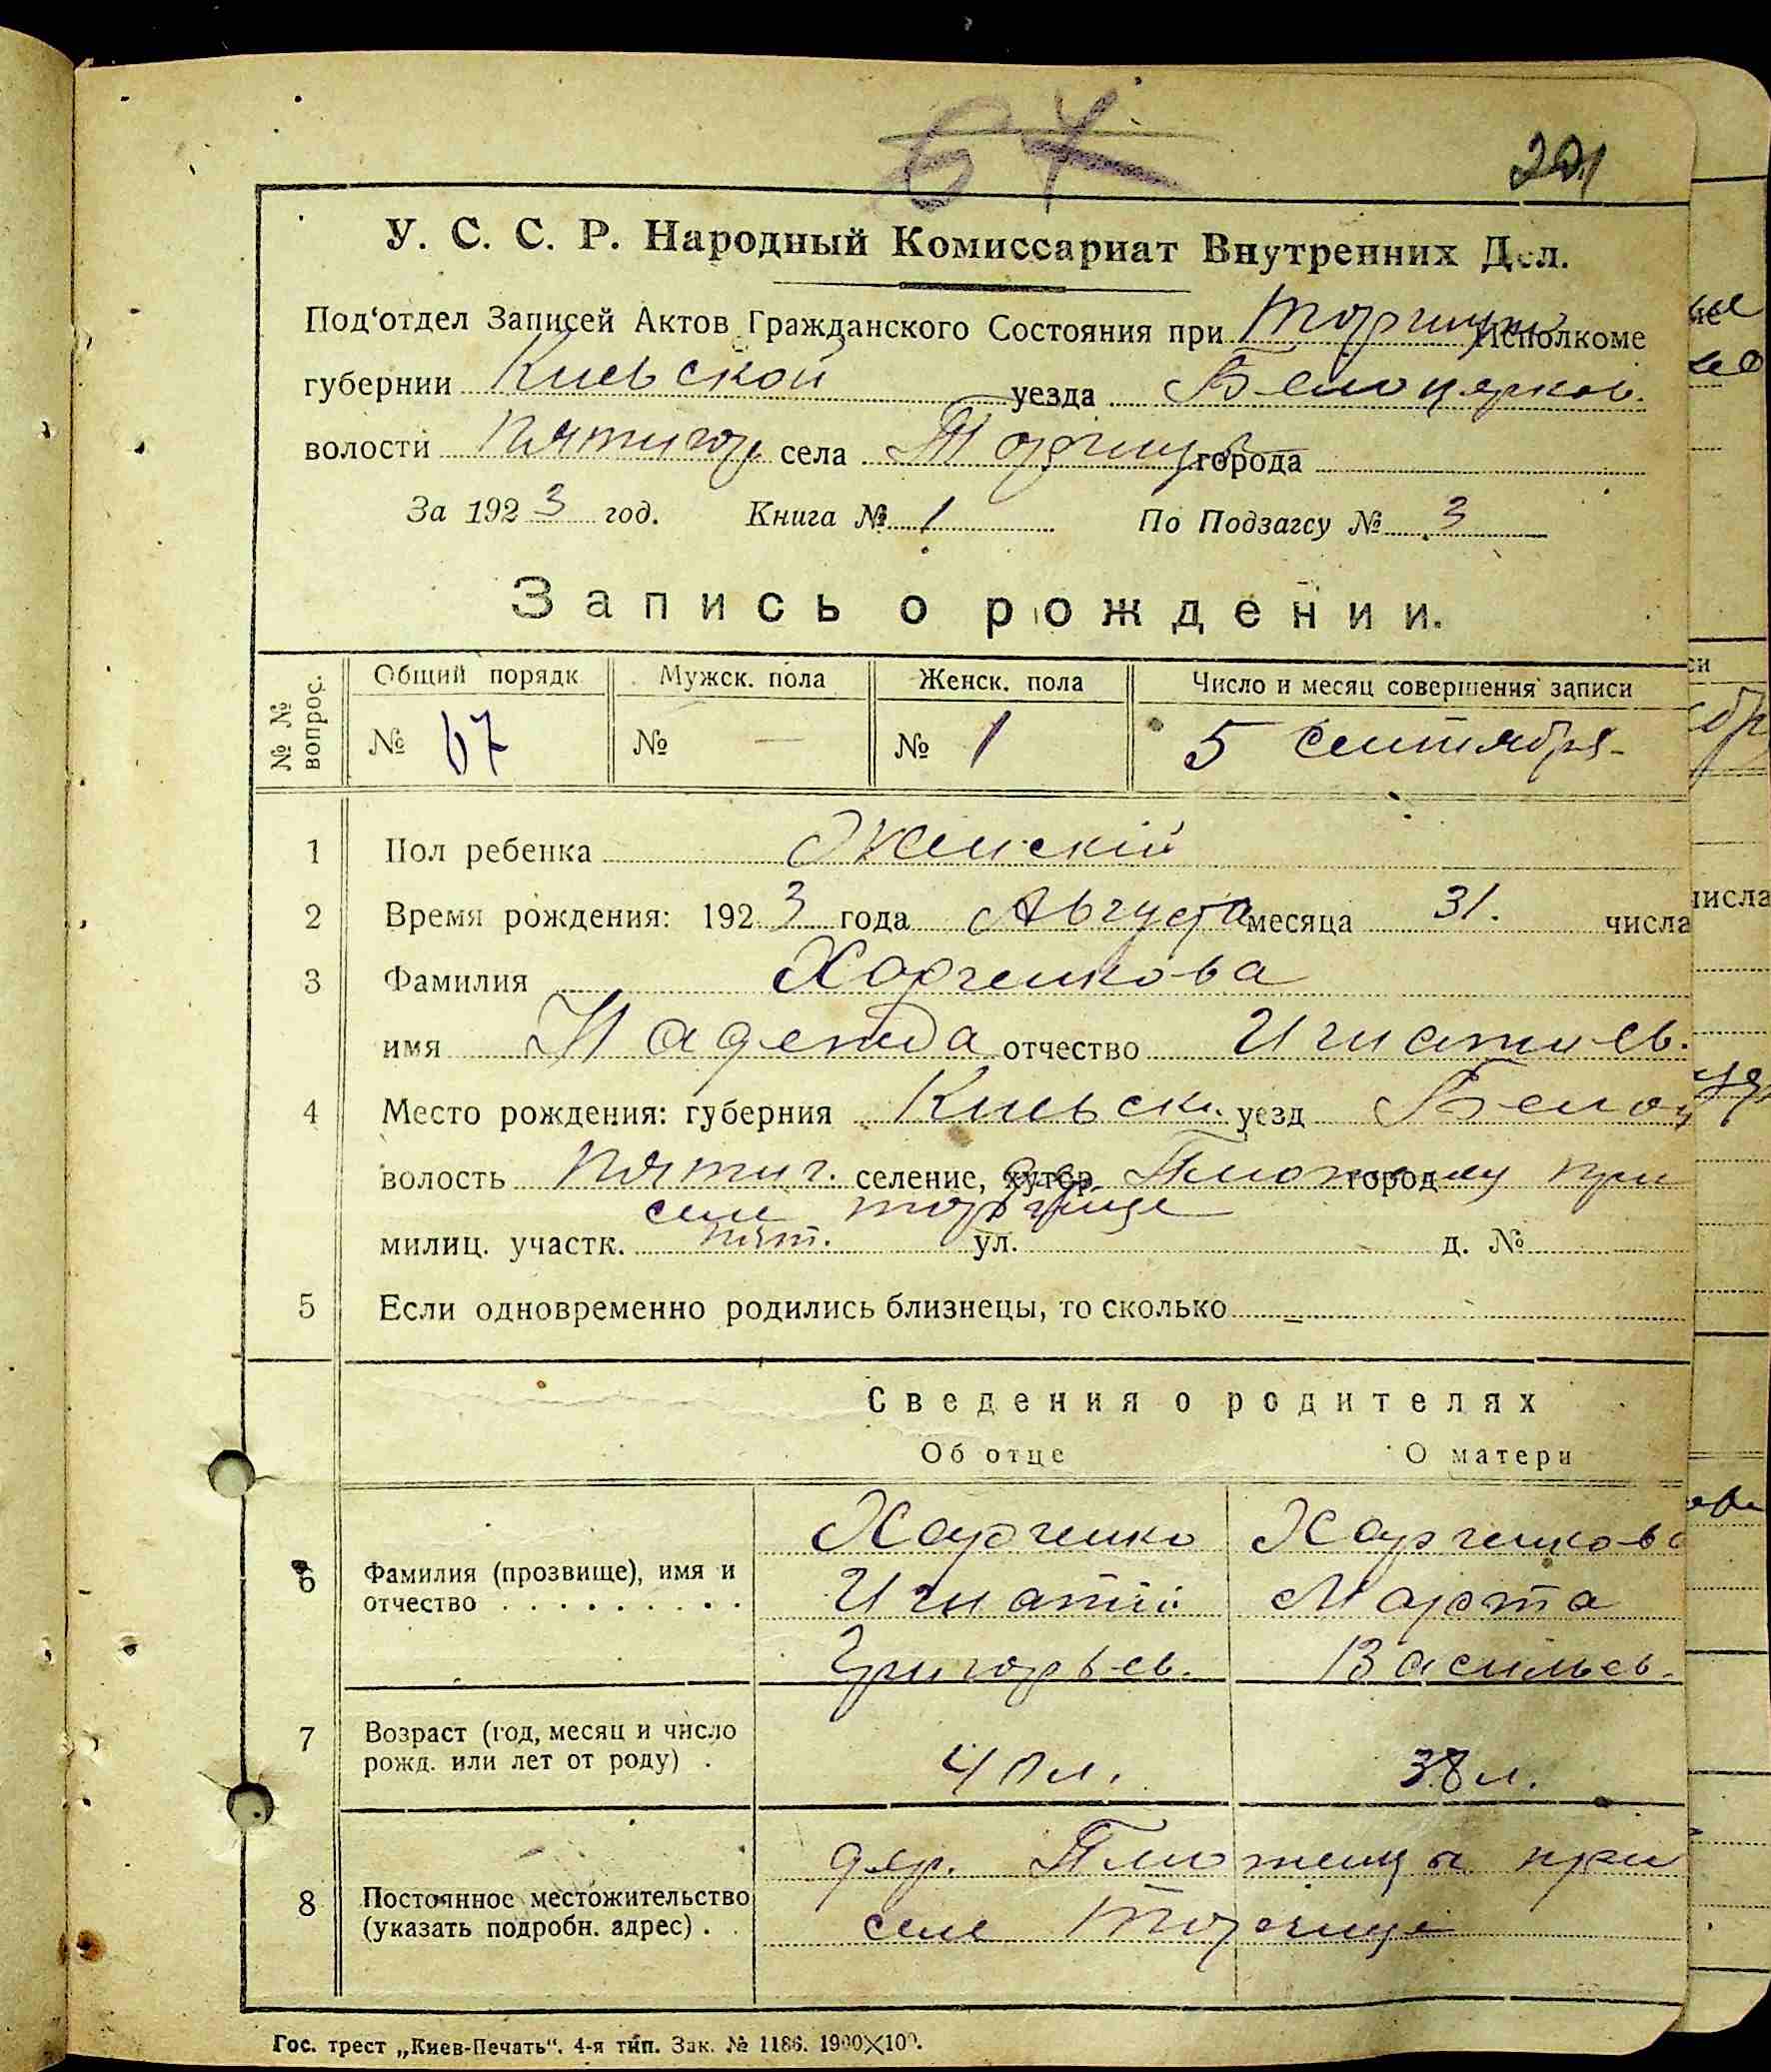 67
201
У. С. С. Р. Народный Комиссариат Внутренних Дел.
Под‘отдел Записей Актов Гражданского Состояния при Торчицк Исполкоме
губернии Киевской уезда Белоцерков.
волости Пятигор. села Торчица города
За 1923 год. Книга № 1 По Подзагсу № 3
Запись о рождении.
№ № вопрос. Общий порядк Мужск. пола Женск. пола Число и месяц совершения записи
№ 67 № — № 1 5 Сентября
1 Пол ребенка Женскій
2 Время рождения: 1923 года Августа месяца 31. числа
3 Фамилия Харченкова
имя Надежда отчество Игнатиев.
4 Место рождения: губерния Киевск. уезд Белоц
волость Пятиг. селение, хутор город при
селе Торчице
милиц. участк. Пят. ул. д. №
5 Если одновременно родились близнецы, то сколько –
Сведения о родителях
Об отце О матери
6 Фамилия (прозвище), имя и отчество . . . . . . . . .
Харченко Харченкова
Игнатій Марта
Григорьев. Васильев.
7 Возраст (год, месяц и число рожд. или лет от роду) . 40 л. 38 л.
8 Постоянное местожительство (указать подробн. адрес) .
дер. при
селе Торчице
Гос. трест „Киев-Печать“. 4-я тип. Зак. № 1186. 1900×100.